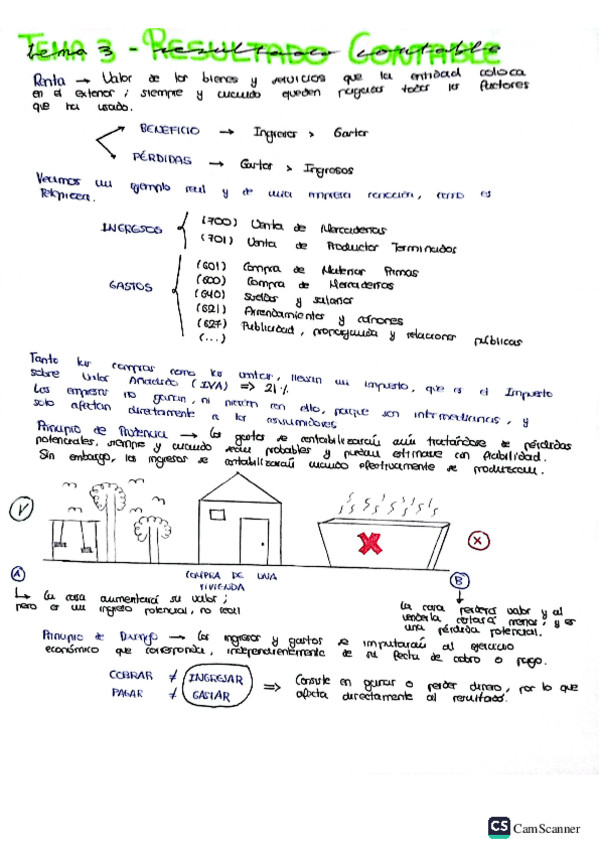 Tema 3 - Resultado Contable
Renta → Valor de los bienes y servicios que la entidad coloca
en el exterior; siempre y cuando queden pagados todos los factores
que ha usado.
BENEFICIO → Ingresos > Gastos
PÉRDIDAS → Gastos > Ingresos
Veamos un ejemplo real y de una empresa conocida, como es
Telepizza.
INGRESOS
(700) Venta de Mercaderías
(701) Venta de Productos Terminados
GASTOS
(601) Compra de Materias Primas
(600) Compra de Mercaderías
(640) Sueldos y salarios
(621) Arrendamientos y cánones
(627) Publicidad, propaganda y relaciones públicas
(...)
Tanto las compras como las ventas, llevan un impuesto, que es el Impuesto
sobre Valor Añadido (IVA) => 21%
Las empresas no ganan, ni pierden con ello, porque son intermediarias, y
solo afectan directamente a los consumidores
Principio de Prudencia → Los gastos se contabilizarán aún tratándose de pérdidas
potenciales, siempre y cuando sean probables y puedan estimarse con fiabilidad.
Sin embargo, los ingresos se contabilizarán cuando efectivamente se produzcan.
V
X
A
COMPRA DE UNA
VIVIENDA
B
↳ La casa aumentará su valor;
pero es un ingreso potencial, no real
La casa perderá valor y al
venderla costará menos; y es
una pérdida potencial.
Principio de Devengo → Los ingresos y gastos se imputarán al ejercicio
económico que corresponda, independientemente de su fecha de cobro o pago.
COBRAR ≠ INGRESAR
PAGAR ≠ GASTAR
=> Consiste en ganar o perder dinero, por lo que
afecta directamente al resultado.
CS CamScanner